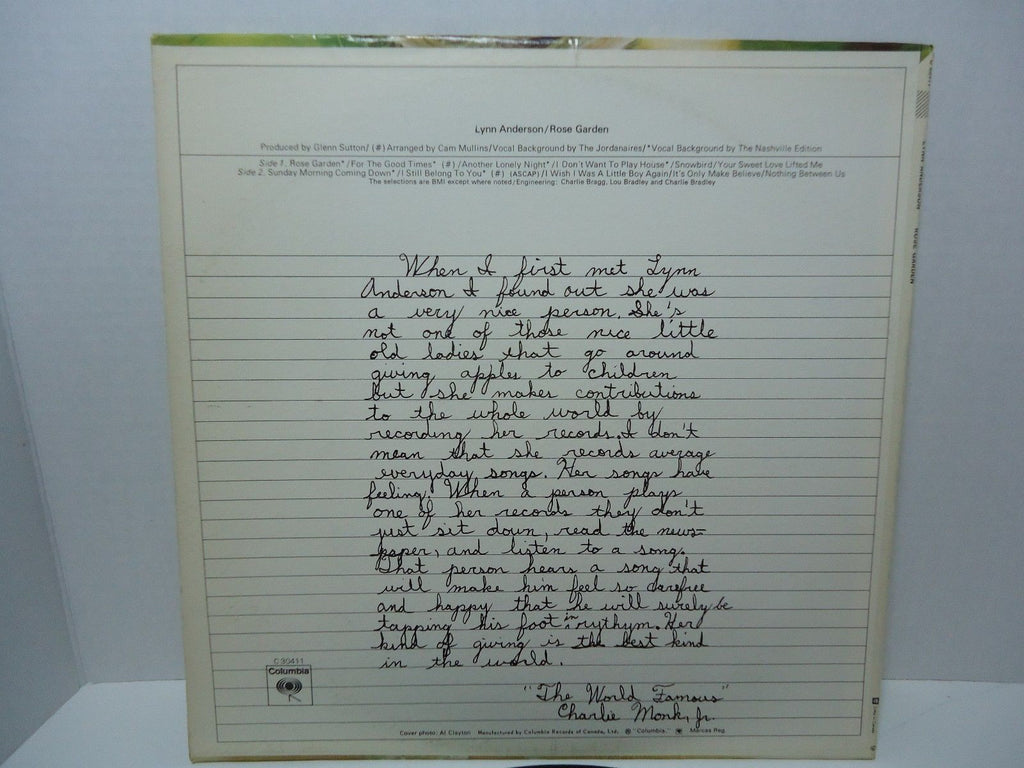 Lynn Anderson/Rose Garden
Produced by Glenn Sutton/ (#) Arranged by Cam Mullins/Vocal Background by The Jordanaires/*Vocal Background by The Nashville Edition
Side 1. Rose Garden*/For The Good Times* (#)/Another Lonely Night*/I Don't Want To Play House*/Snowbird/Your Sweet Love Lifted Me
Side 2. Sunday Morning Coming Down*/I Still Belong To You* (#) (ASCAP)/I Wish I Was A Little Boy Again/It's Only Make Believe/Nothing Between Us
The selections are BMI except where noted/Engineering: Charlie Bragg, Lou Bradley and Charlie Bradley
When I first met Lynn
Anderson I found out she was
a very nice person. She's
not one of those nice little
old ladies that go around
giving apples to children
but she makes contributions
to the whole world by
recording her records. I don't
mean that she records average
everyday songs. Her songs have
feeling. When a person plays
one of her records they don't
just sit down, read the news=
paper, and listen to a song.
That person hears a song that
will make him feel so carefree
and happy that he will surely be
tapping his foot in rythym. Her
kind of giving is the best kind
in the world.
"The World Famous"
Charlie Monk, Jr.
C 30411
Columbia
Cover photo: Al Clayton Manufactured by Columbia Records of Canada, Ltd. ® "Columbia," Marcas Reg.
LYNN ANDERSON ROSE GARDEN